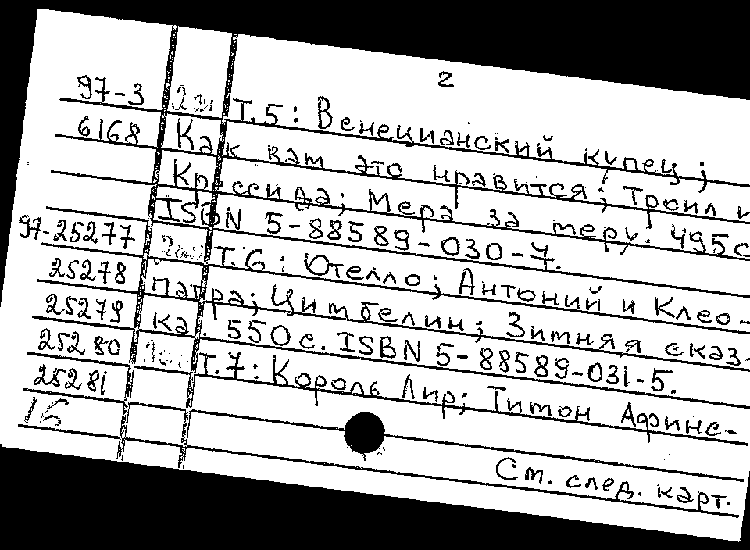 2
97-3 2эк Т.5: Венецианский купец;
6168 Как вам это нравится; Троил и
Крессида; Мера за меру. 495с
ISBN 5-88589-030-7.
97-25277 Т.6: Отелло; Антоний и Клео-
25278 патра; Цимбелин; Зимняя сказ-
25279 ка. 550с. ISBN 5-88589-031-5.
25280 Т.7: Король Лир; Тимон Афинс-
25281
16
См. след. карт.